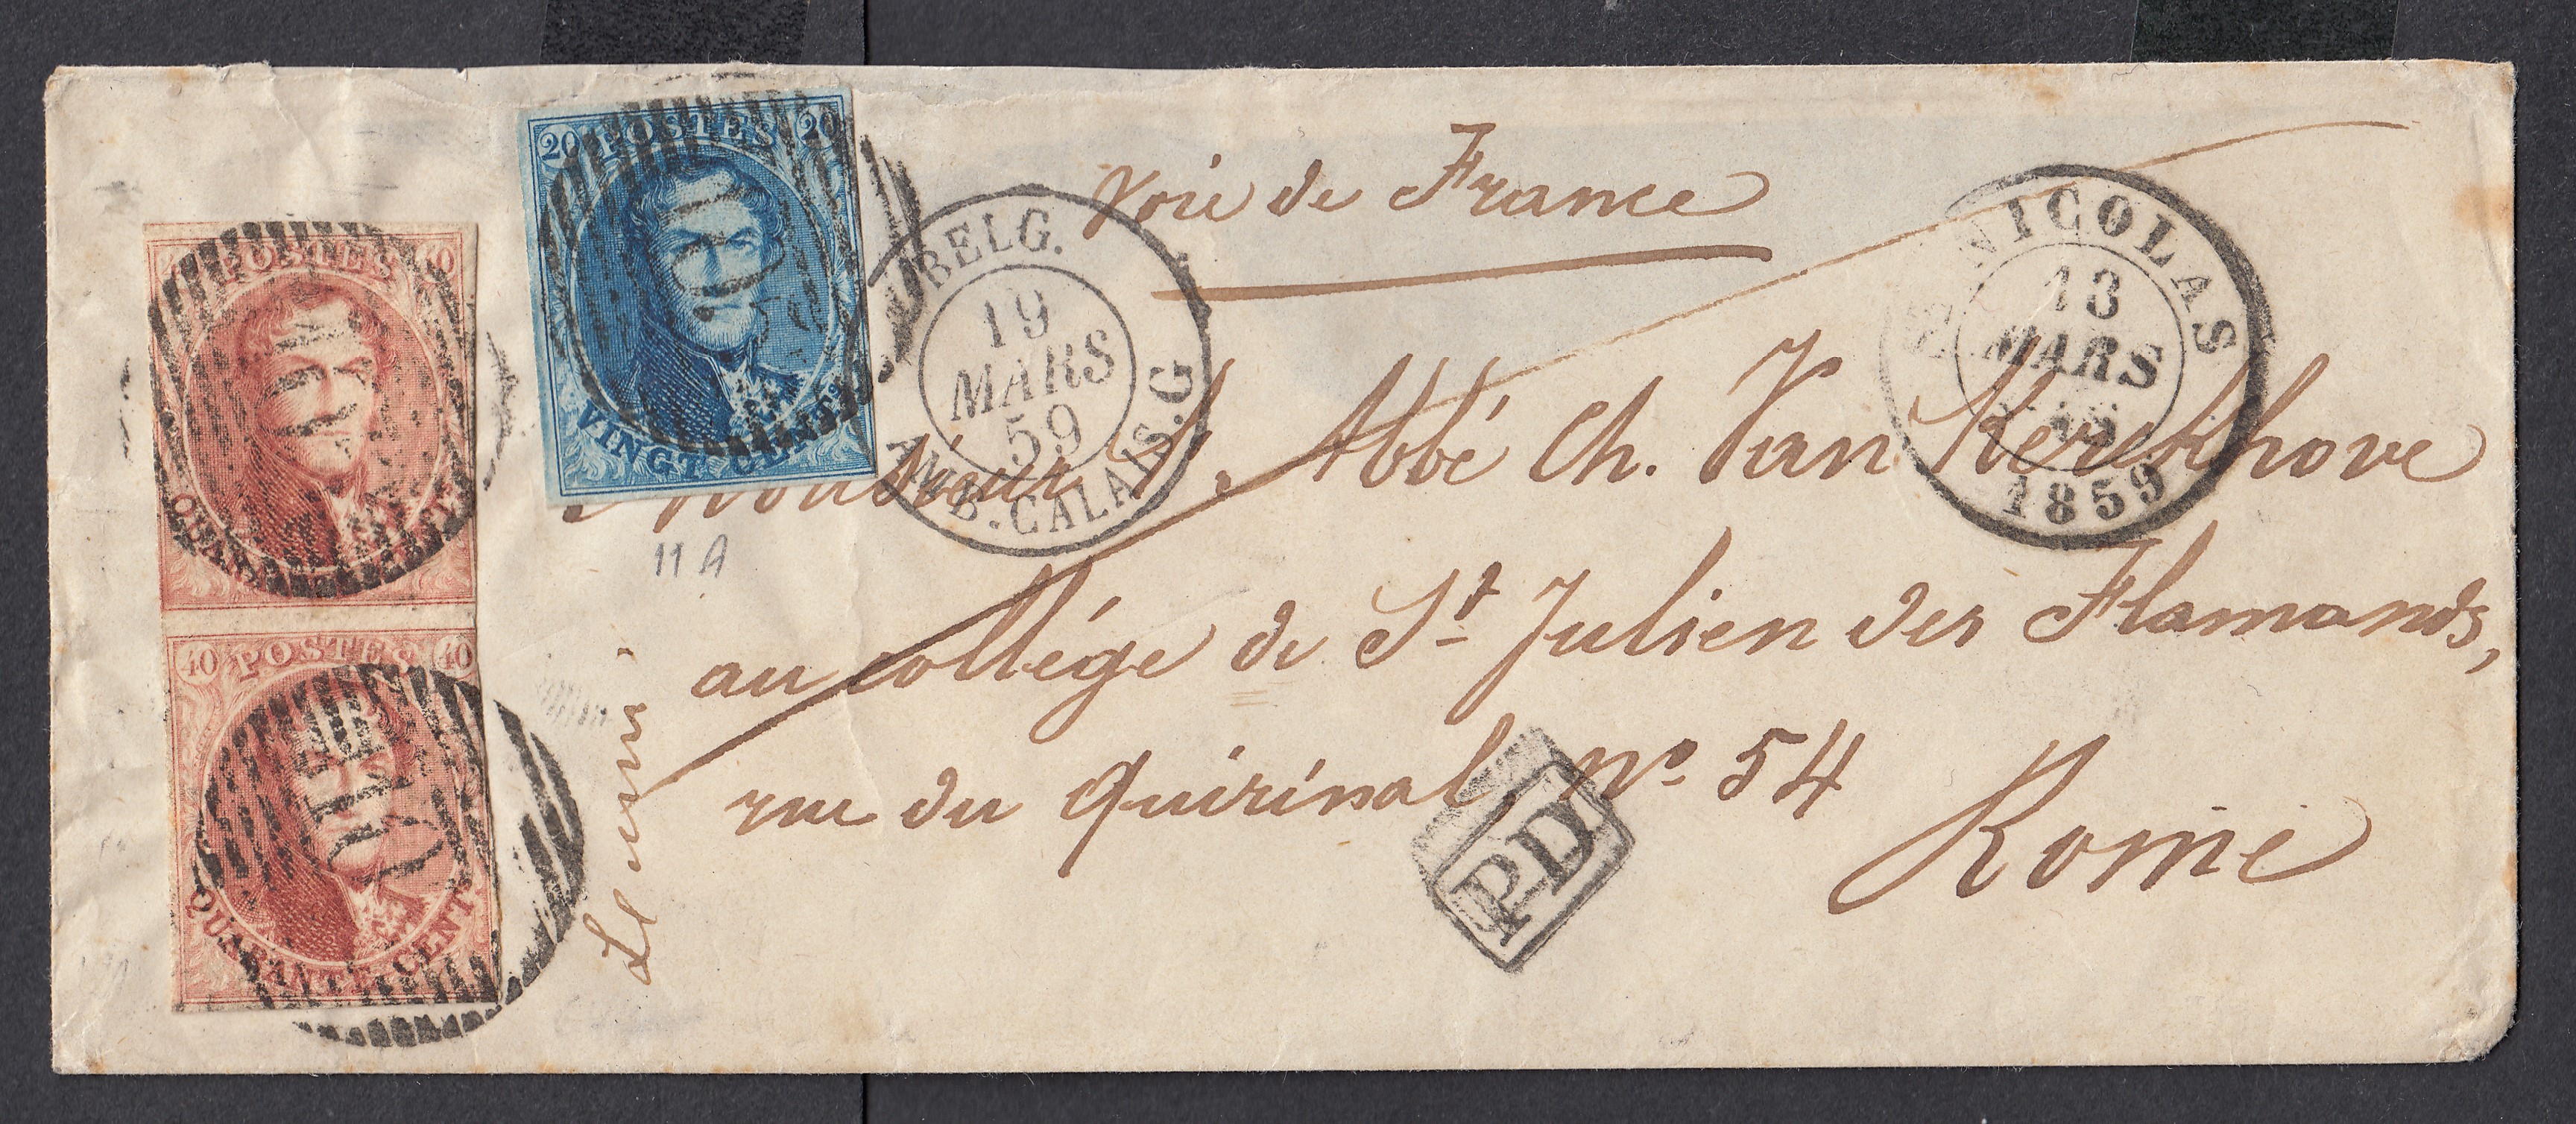 20 POSTES 20
VINGT CENTS
POSTES 40
40 POSTES 40
QUARANTE CENTS
BELG.
19
MARS
59
AMB. CALAIS. G
Voie de France
St NICOLAS
13
MARS
1859
Monsieur l'. Abbé Ch. Van Kerckhove
11 A
au collége de St Julien des Flamands,
rue du Quirinal, no. 54
Rome
PD